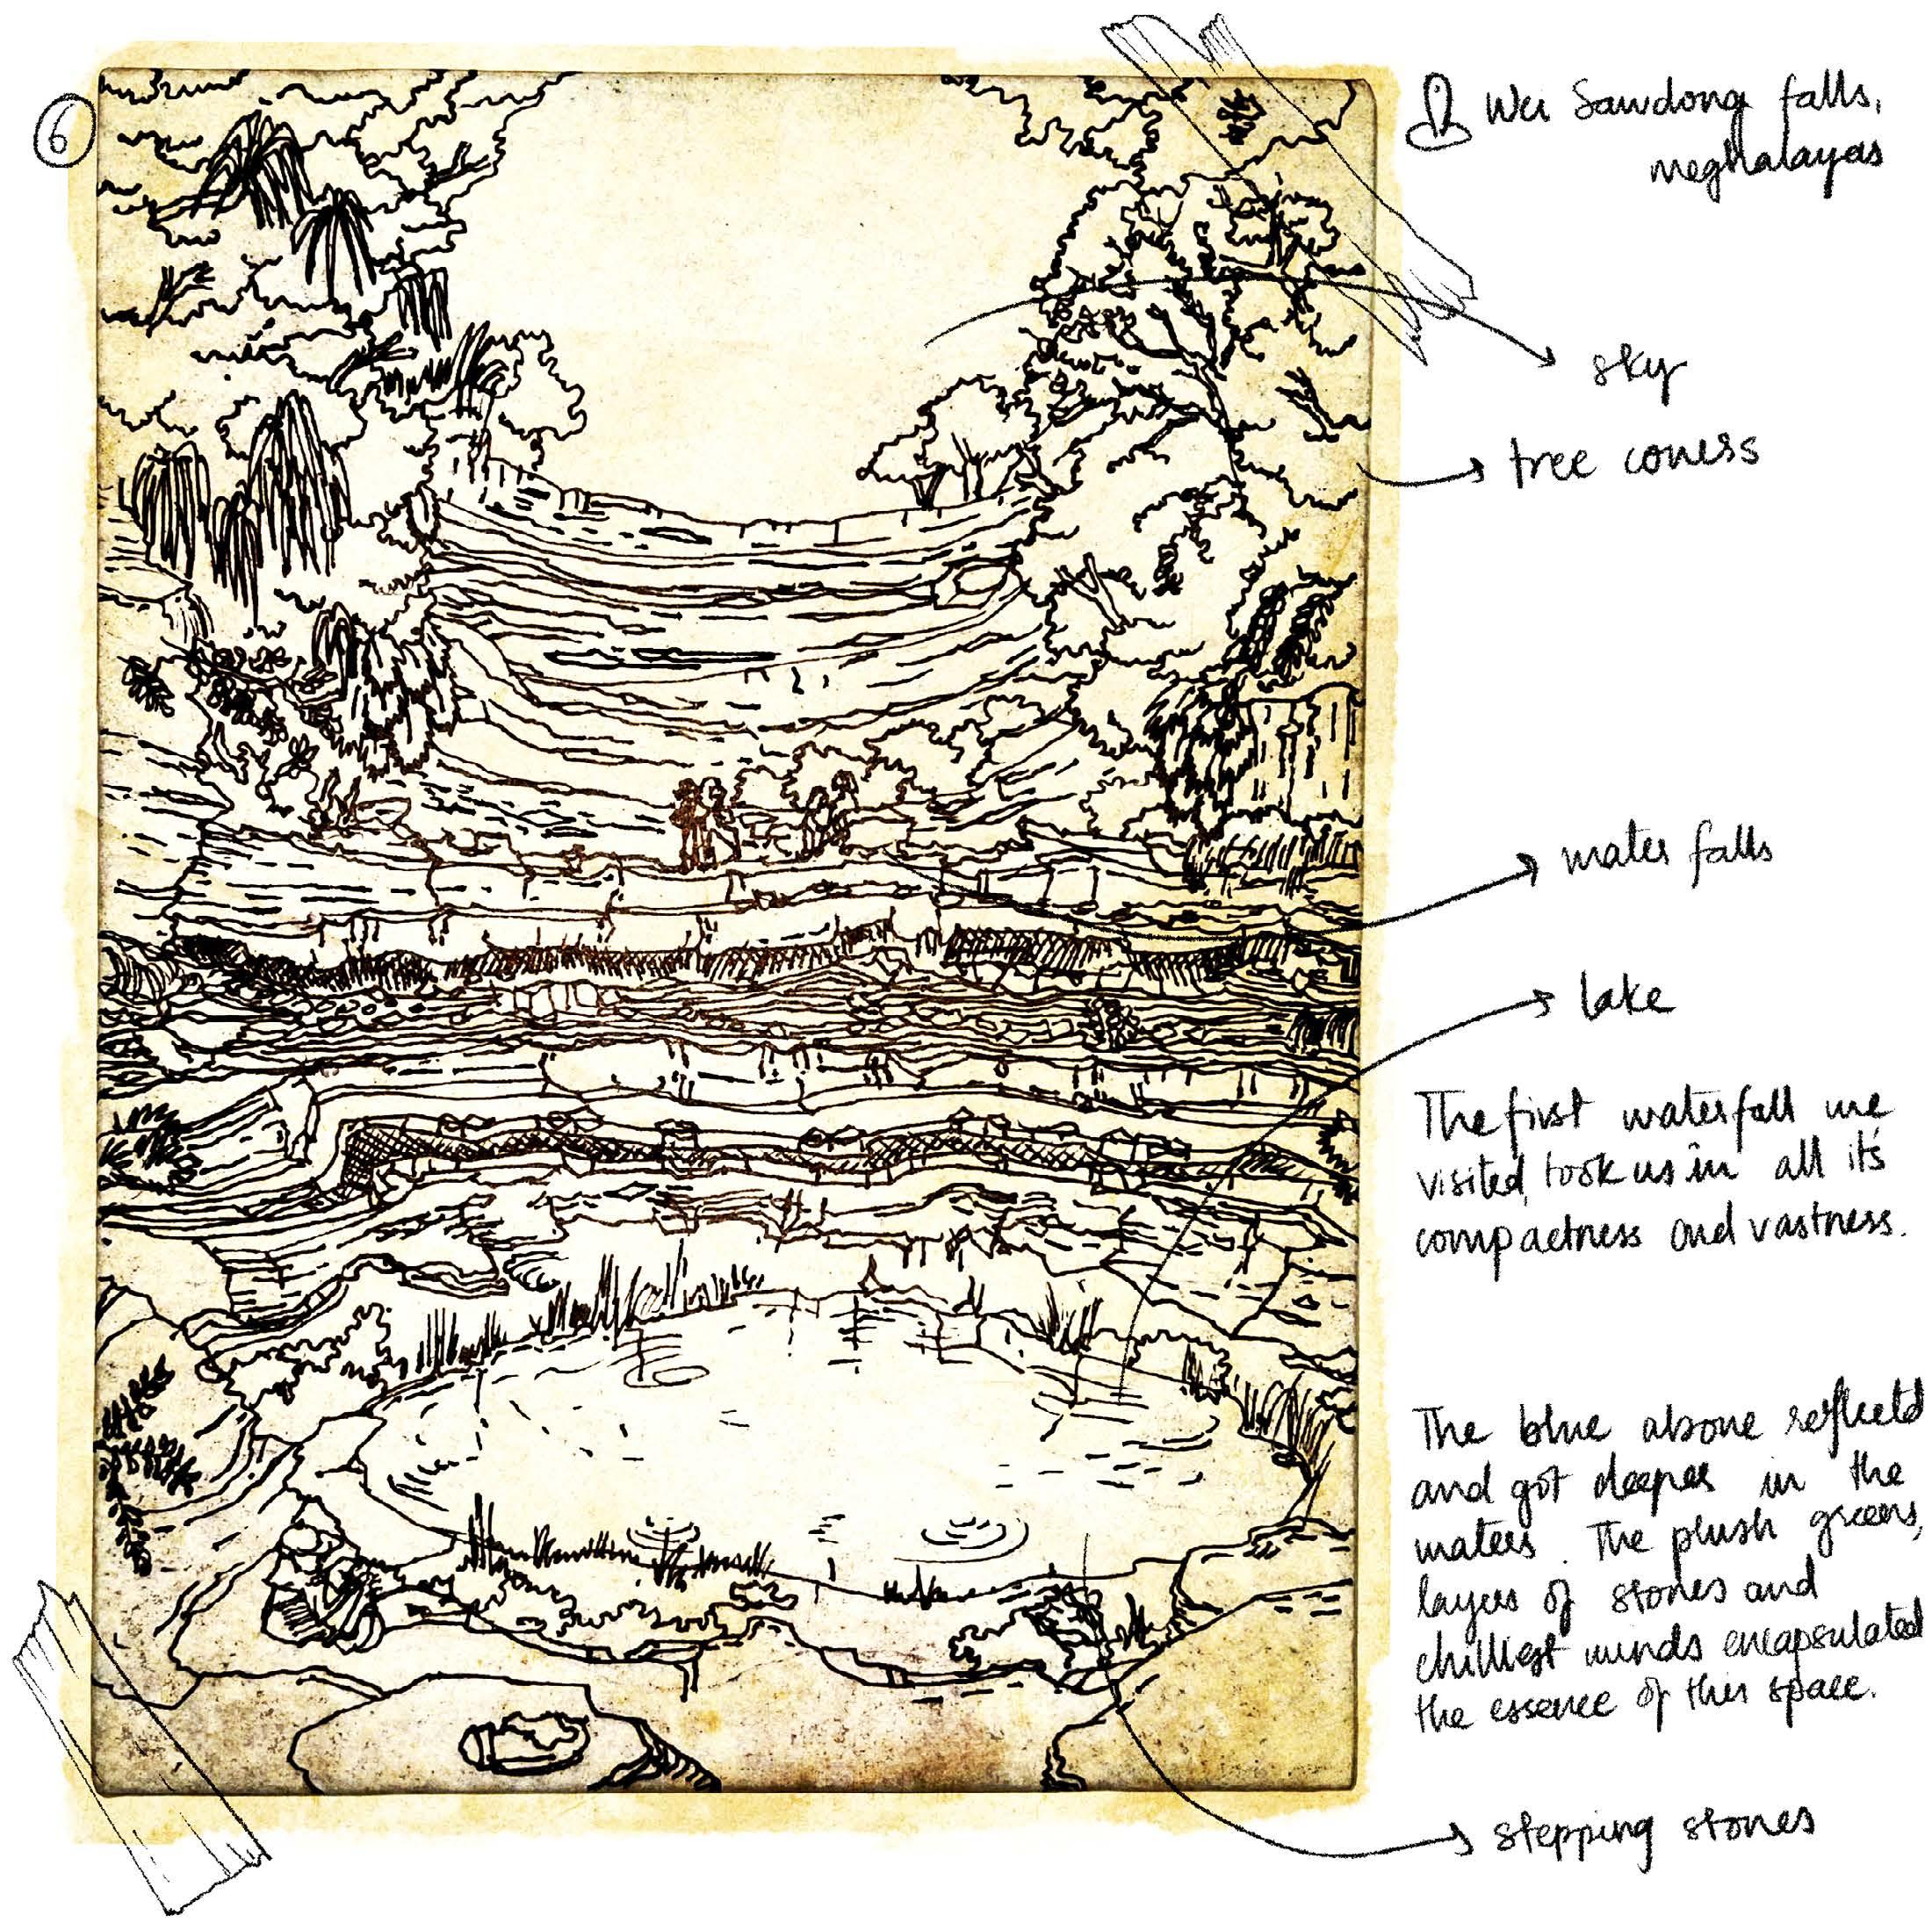 6
Wei Sawdong falls,
meghalayas
sky
tree covers
water falls
lake
The first waterfall we
visited, took us in all its
compactness and vastness.
The blue above reflectd
and got deeper in the
waters. The plush greens,
layers of stones and
chilliest winds encapsulated
the essence of this space.
stepping stones